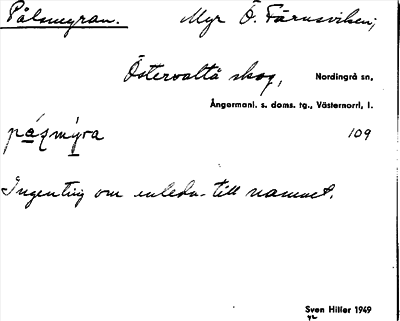 Pålsmyran. Myr Ö. Färnsviken,
Östervattå skog, Nordingrå sn,
Ångermanl. s. doms. tg., Västernorrl, l.
pǻʒmýra 109
Ingenting om anledn. till namnet.
Sven Hiller 1949